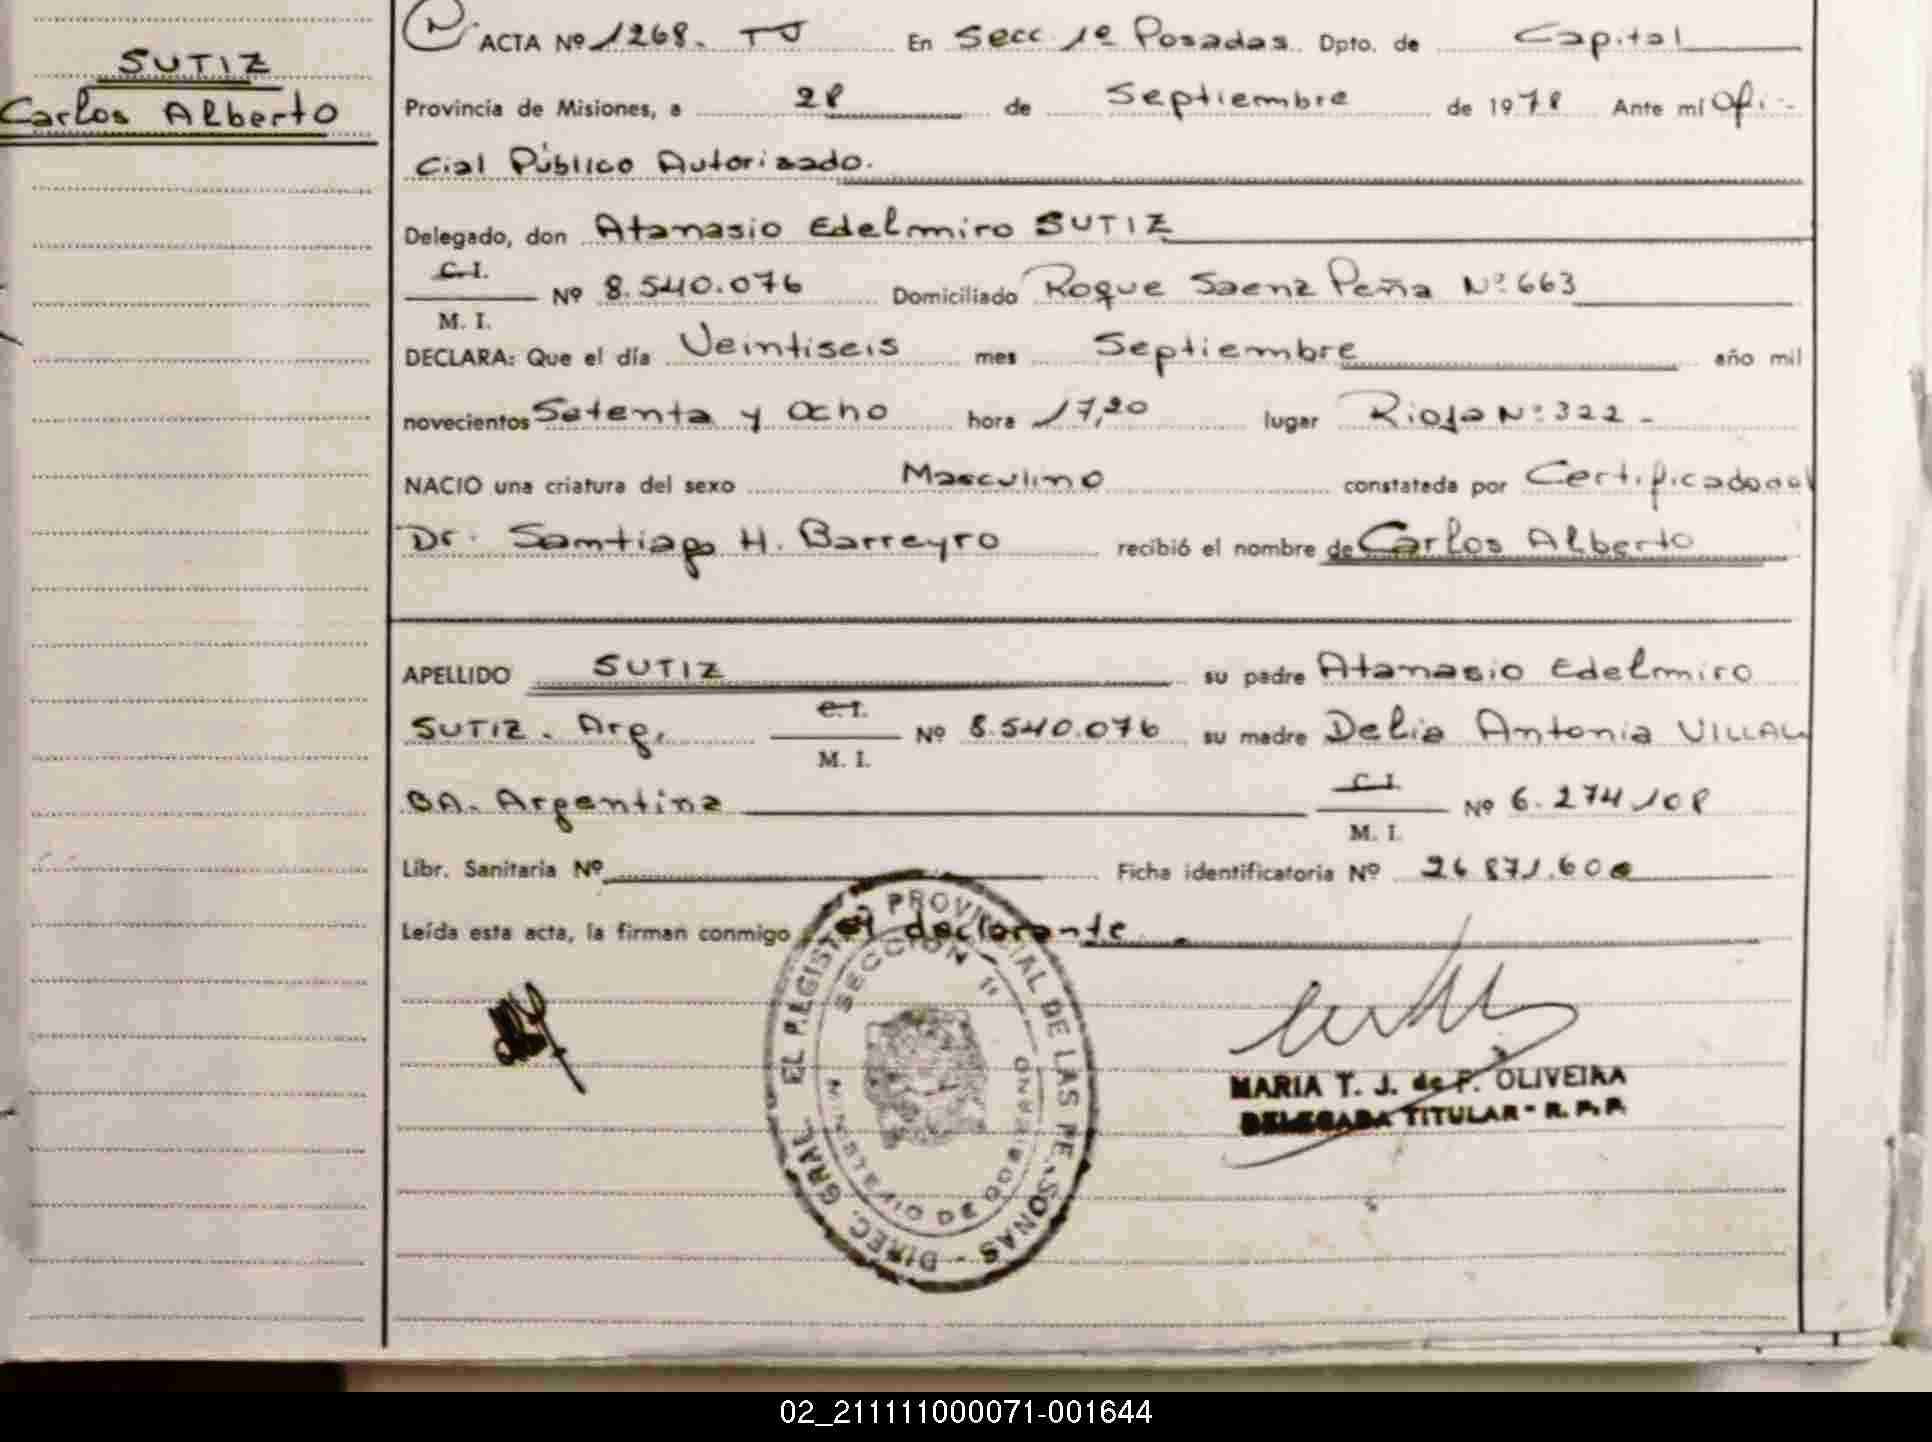 SUTIZ
Carlos Alberto
ACTA Nº 1268. TJ En Secc 1º Posadas Dpto. de Capital
Provincia de Misiones, a 28 de Septiembre de 1978 Ante mí Ofi-
cial Público Autorizado.
Delegado, don Atanasio Edelmiro SUTIZ
C.I.
M. I. Nº 8.540.076 Domiciliado Roque Saenz Peña Nº 663
DECLARA: Que el día Veintiseis mes Septiembre año mil
novecientos Setenta y Ocho hora 17,20 lugar Rioja Nº 322 -
NACIO una criatura del sexo Masculino constatada por Certificado del
Dr. Santiago H. Barreyro recibió el nombre de Carlos Alberto
APELLIDO SUTIZ su padre Atanasio Edelmiro
SUTIZ. Arg. C.I.
M. I. Nº 8.540.076 su madre Delia Antonia VILLAL
BA. Argentina C.I.
M. I. Nº 6.274.108
Libr. Sanitaria Nº Ficha identificatoria Nº 26 871.60
Leída esta acta, la firman conmigo el declarante
DIREC. GRAL. EL REGISTRO PROVINCIAL DE LAS PERSONAS -
SECCION 1º
MARIA T. J. de P. OLIVEIRA
DELEGADA TITULAR - R. P. P.
02_211111000071-001644